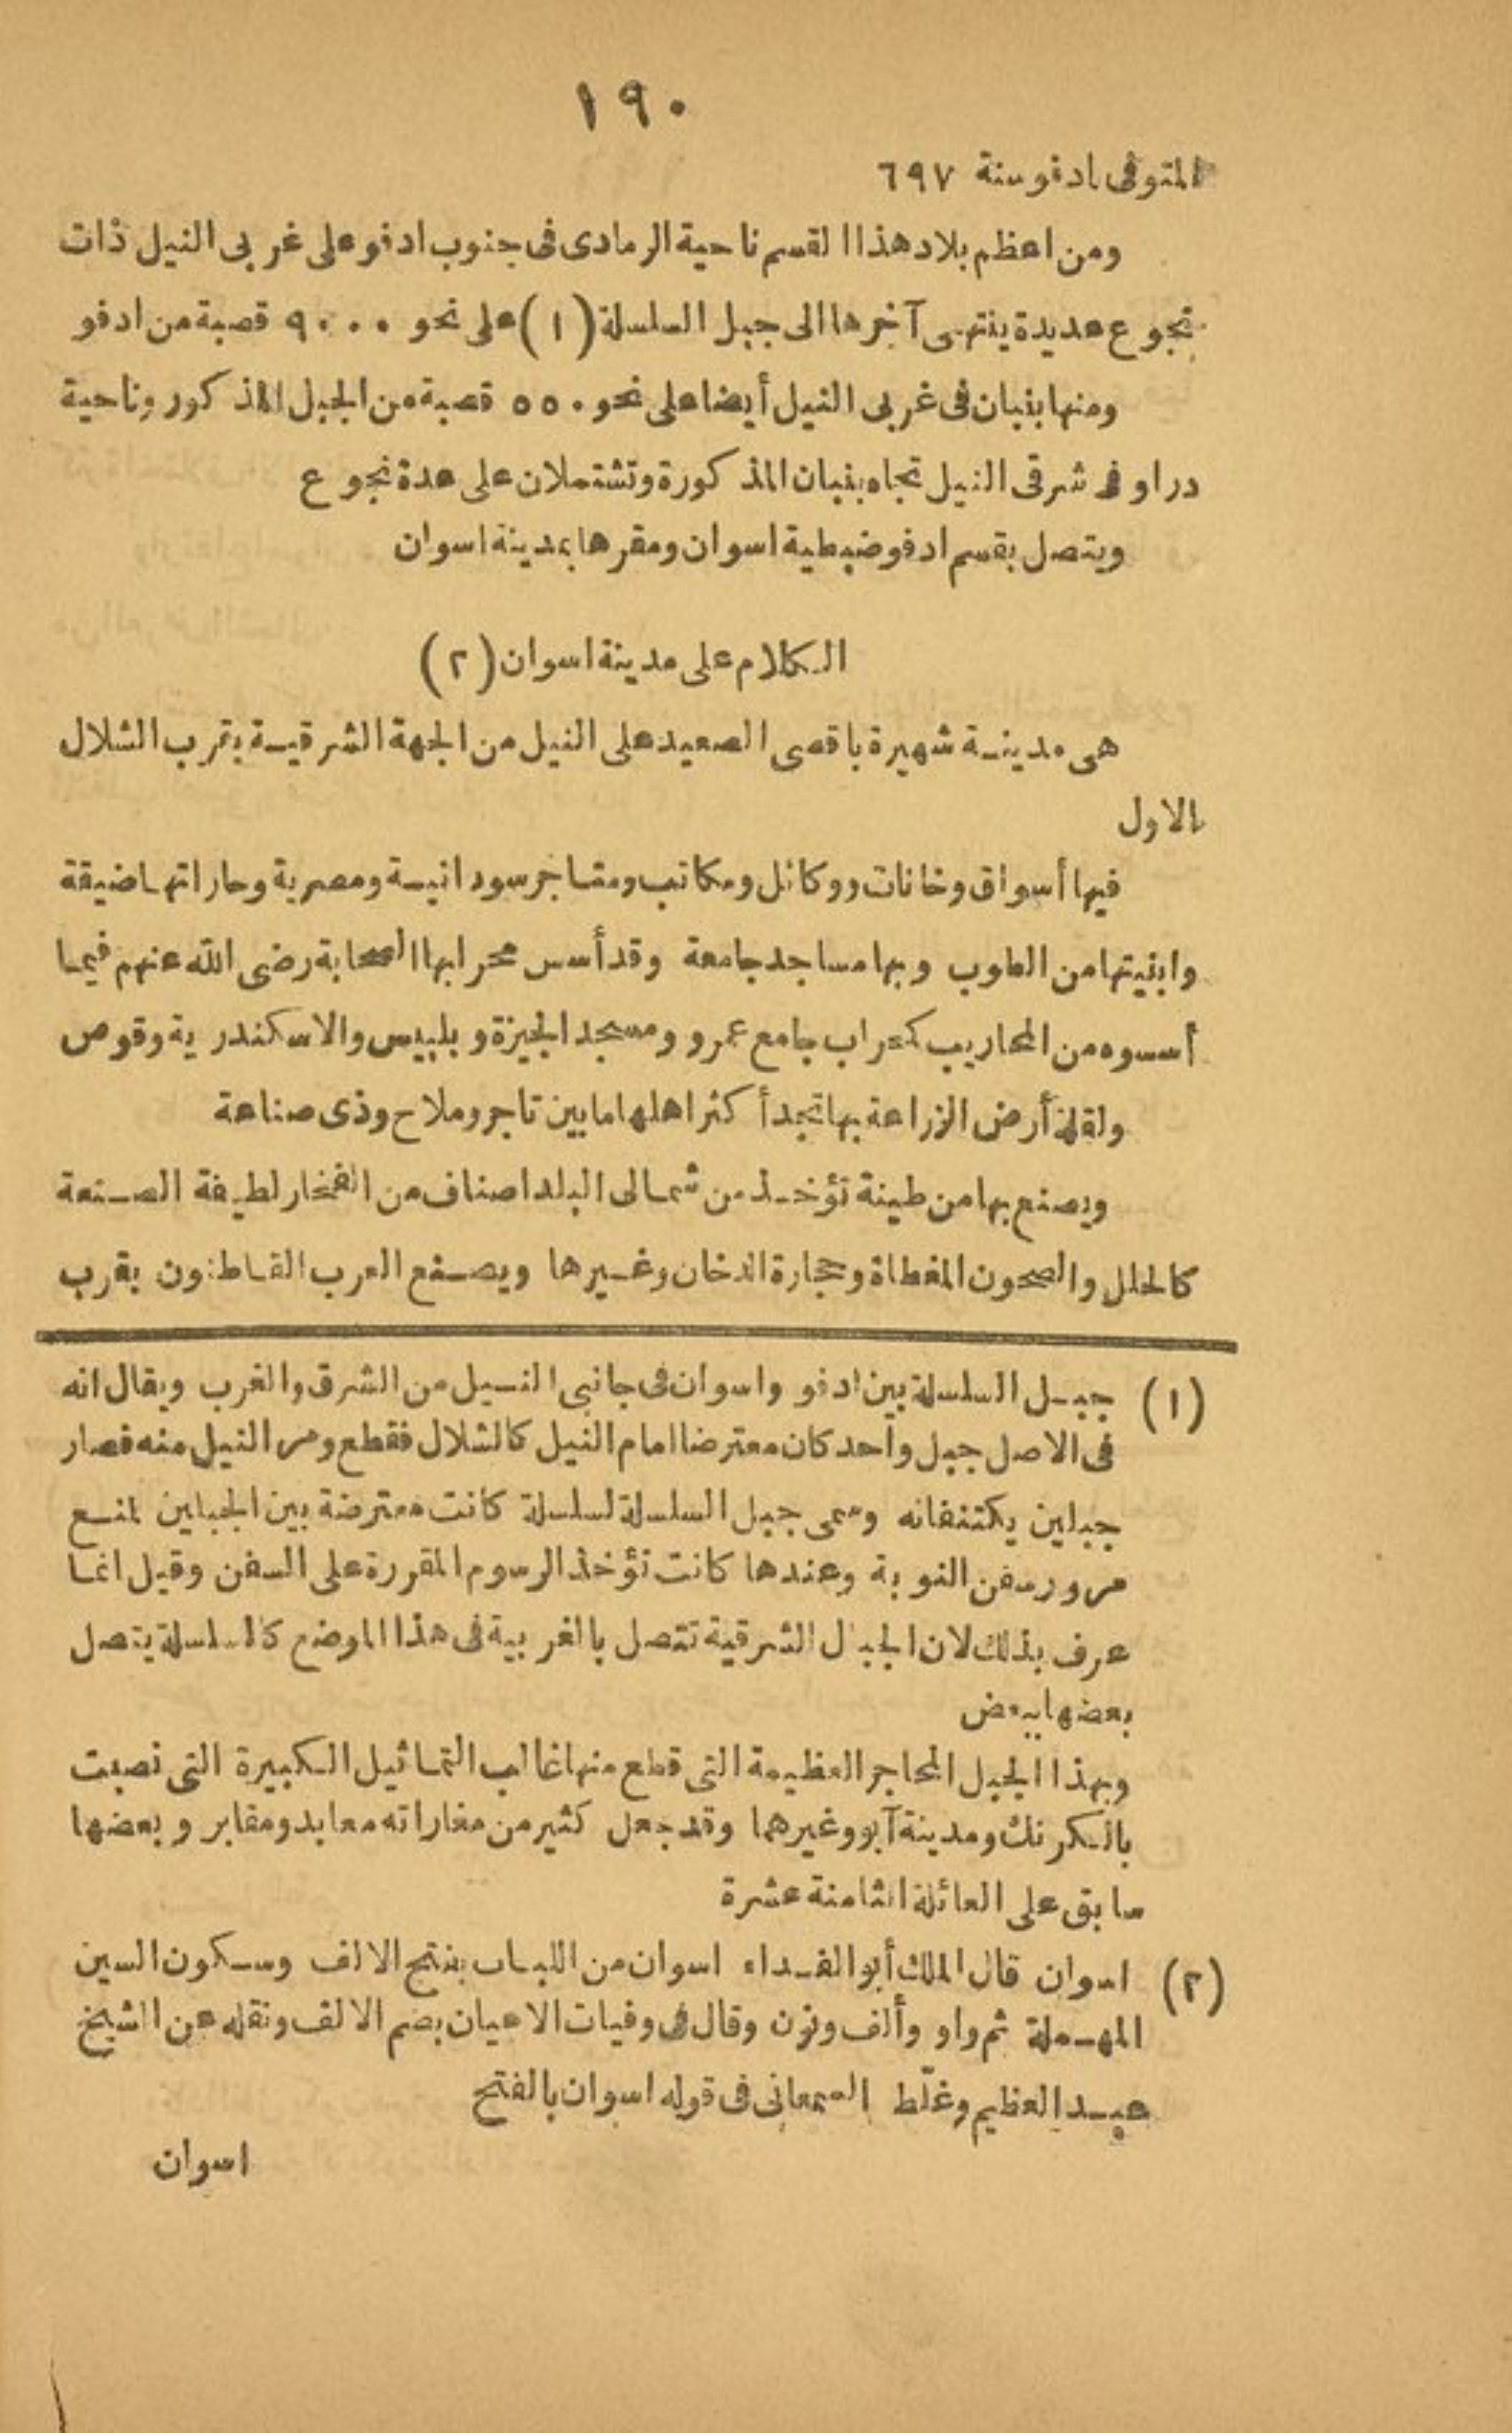 ١٩٠
المتوفى بادفو سنة ٦٩٧
ومن اعظم بلاد هذا القسم ناحية الرمادى فى جنوب ادفو على غربى النيل ذات
نجوع عديدة ينتهى آخرها الى جبل السلسلة (١) على نحو ٩٠٠٠ قصبة من ادفو
ومنها بنبان فى غربى النيل أيضا على نحو ٥٥٠ قصبة من الجبل المذكور وناحية
دراو فى شرقى النيل تجاه بنبان المذكورة وتشتملان على عدة نجوع
ويتصل بقسم ادفو ضبطية اسوان ومقرها بمدينة اسوان
الكلام على مدينة اسوان (٢)
هى مدينة شهيرة باقصى الصعيد على النيل من الجهة الشرقية بقرب الشلال
الاول
فيها أسواق وخانات ووكائل ومكاتب ومتاجر سودانية ومصرية وحاراتها ضيقة
وابنيتها من الطوب وبها مساجد جامعة وقد أسس محرابها الصحابة رضى الله عنهم فيما
أسسوه من المحاريب كمحراب جامع عمرو ومسجد الجيزة وبلبيس والاسكندرية وقوص
ولقلة أرض الزراعة بها تجد أكثر اهلها ما بين تاجر وملاح وذى صناعة
ويصنع بها من طينة تؤخذ من شمالى البلد اصناف من الفخار لطيفة الصنعة
كالحلل والصحون المغطاة وحجارة الدخان وغيرها ويصنع العرب القاطنون بقرب
(١) جبل السلسلة بين ادفو واسوان فى جانبى النيل من الشرق والغرب ويقال انه
فى الاصل جبل واحد كان معترضا امام النيل كالشلال فقطع ومر النيل منه فصار
جبلين يكتنفانه وسمى جبل السلسلة لسلسلة كانت معترضة بين الجبلين لمنع
مرور سفن النوبة وعندها كانت تؤخذ الرسوم المقررة على السفن وقيل انما
عرف بذلك لان الجبال الشرقية تتصل بالغربية فى هذا الموضع كالسلسلة يتصل
بعضها ببعض
وبهذا الجبل المحاجر العظيمة التى قطع منها غالب التماثيل الكبيرة التى نصبت
بالكرنك ومدينة آبو وغيرهما وقد جعل كثير من مغاراته معابد ومقابر وبعضها
سابق على العائلة الثامنة عشرة
(٢) اسوان قال الملك أبو الفداء اسوان من اللباب بفتح الالف وسكون السين
المهملة ثم واو وألف ونون وقال فى وفيات الاعيان بضم الالف ونقله عن الشيخ
عبد العظيم وغلّط السمعانى فى قوله اسوان بالفتح
اسوان